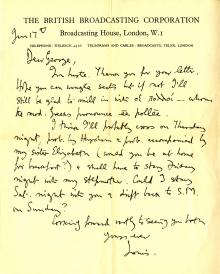 THE BRITISH BROADCASTING CORPORATION
Broadcasting House, London, W.1
TELEPHONE: WELBECK 4468 TELEGRAMS AND CABLES: BROADCASTS, TELEX, LONDON
Jan 17th
Dear George,
In haste. Thank you for your letter.
Hope you can wangle seats but if not I'll
still be glad to mill in
the mod. Greeks pronounce
I think I'll probably cross on Thursday
night, prob. by Heysham & prob. accompanied by
my sister Elizabeth (would you be at home
for breakfast?) & shall have to stay Friday
night with my stepmother. Could I stay
Sat. night with you & drift back to S.M.
on Sunday?
Looking forward to seeing you both
Yours ever
Louis.